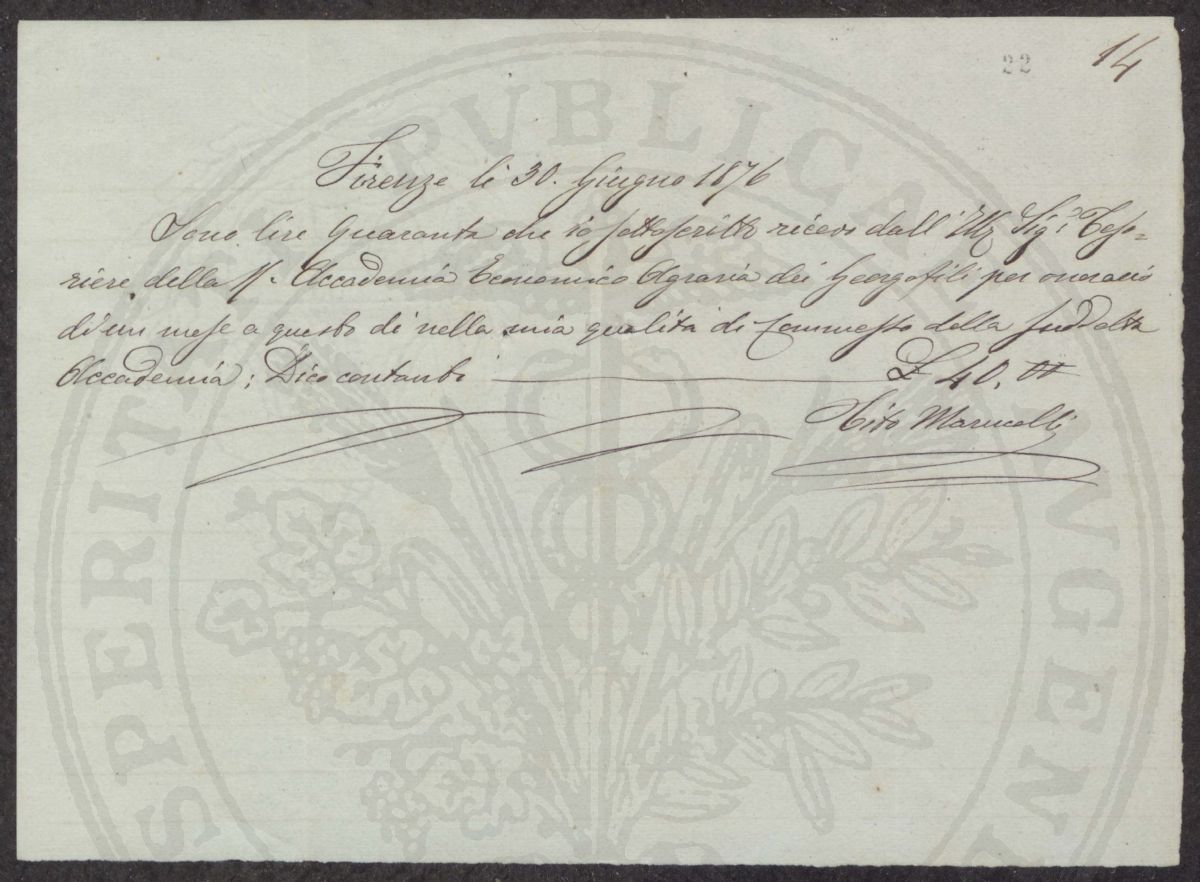 22
14
Firenze li 30. Giugno 1876
Sono lire Quaranta che io sottoscritto ricevo dall'Ill. Sig. Teso=
riere della Accademia Economico Agraria dei Georgofili per onorario
di un mese a questo dì nella mia qualità di Commesso della suddetta
Accademia; Dico contanti £ 40, 00
Tito Marucelli
PROSPERITATI PUBLICAE AUGENDAE